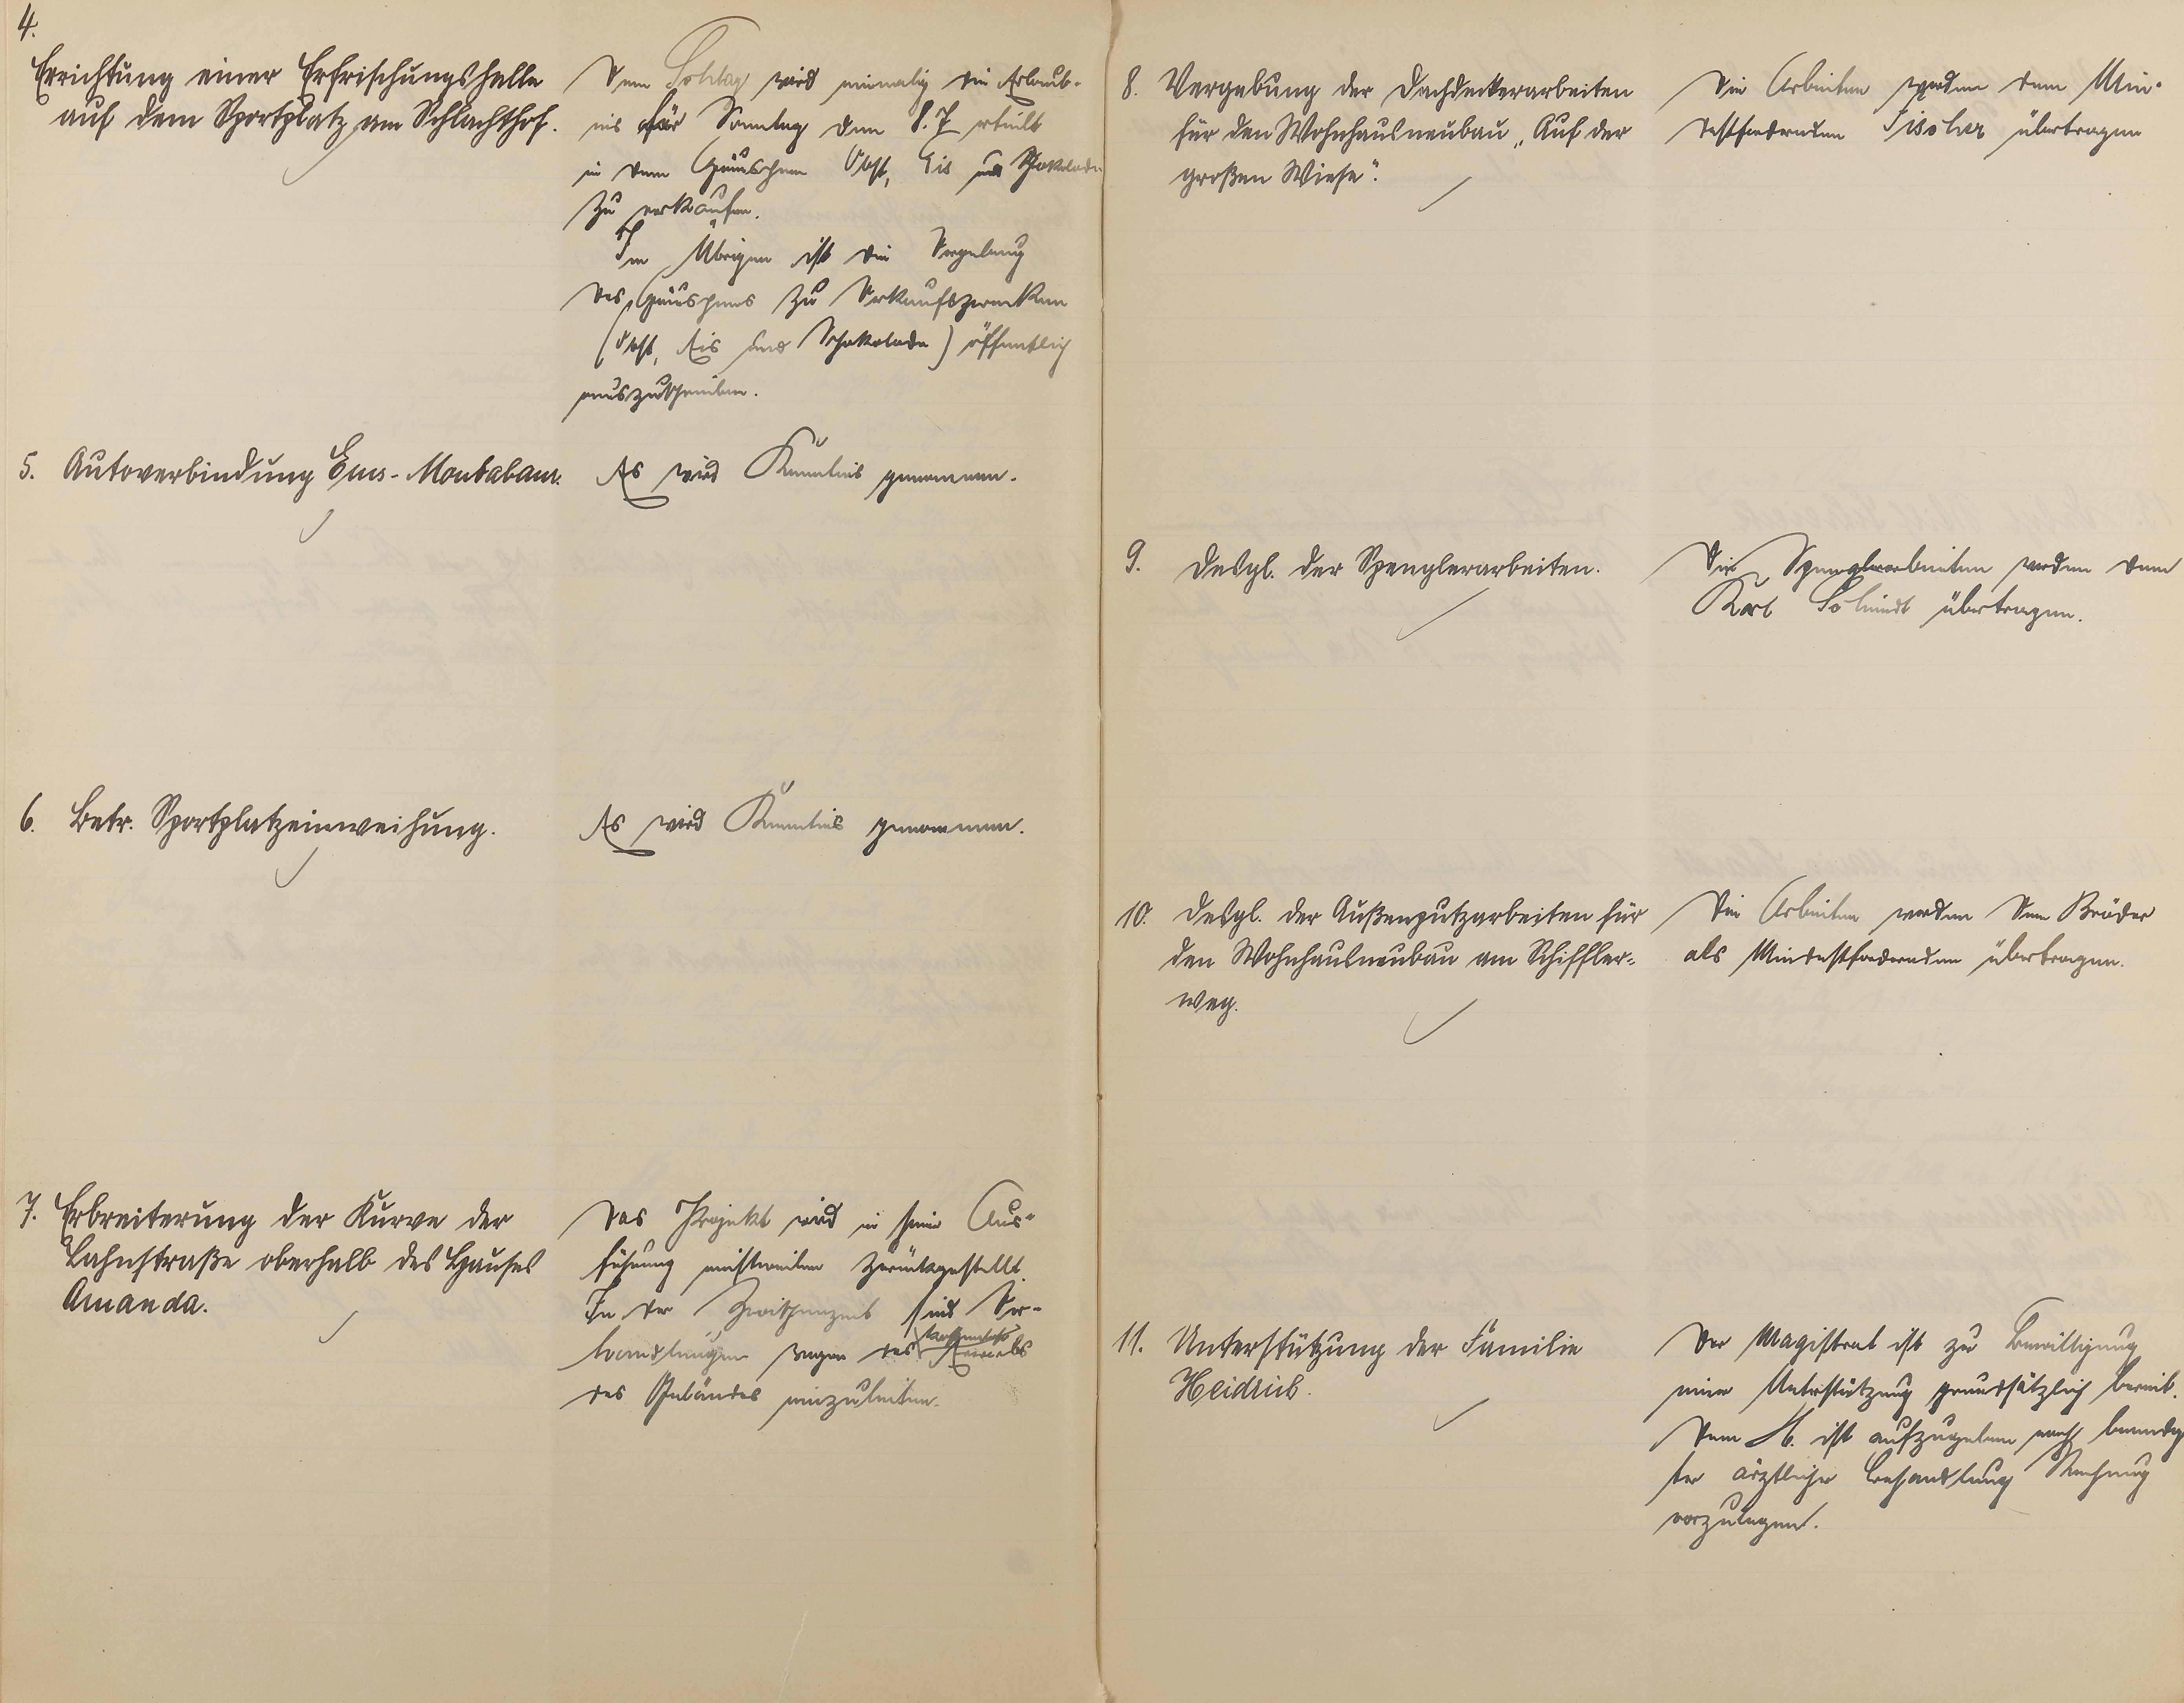 4.
Errichtung einer Erfrischungshalle
auf dem Sportplatz am Schlachthof.
Dem Sohlag wird einmalig die Erlaub-
nis für Sonntag den 8. 7 erteilt
in dem Häuschen Obst, Eis und Schokolade
zu verkaufen.
Im Übrigen ist die Vergebung
des Häuschens zu Verkaufszwecken
(Obst, Eis und Schokolade) öffentlich
auszuschreiben.
5. Autoverbindung Ems-Montabaur.
Es wird Kenntnis genommen.
6. Betr. Sportplatzeinweihung.
Es wird Kenntnis genommen.
7. Erbreiterung der Kurve der
Lahnstraße oberhalb des Hauses
Amanda.
Das Projekt wird in seiner Aus-
führung einstweilen zurückgestellt.
In der Zwischenzeit sind Ver-
handlungen wegen des Erwerbs
des Geländes einzuleiten.
8. Vergebung der Dachdeckerarbeiten
für den Wohnhausneubau „Auf der
großen Wiese".
Die Arbeiten werden dem Min-
destfordernden Fischer übertragen
9. Desgl. der Spenglerarbeiten.
Die Spenglerarbeiten werden dem
Karl Schmidt übertragen.
10. Desgl. der Außenputzarbeiten für
den Wohnhausneubau am Schiffler-
weg.
Die Arbeiten werden dem Bröder
als Mindestfordernden übertragen.
11. Unterstützung der Familie
Heidrich.
Der Magistrat ist zu Bewilligung
einer Unterstützung grundsätzlich bereit.
Dem H. ist aufzugeben nach beendig-
ter ärztlicher Behandlung Rechnung
vorzulegen.